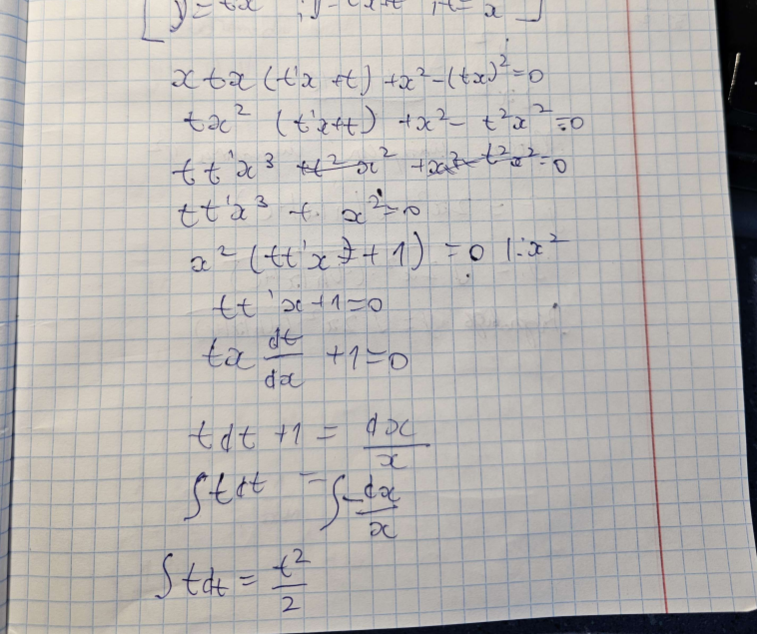 x t x (t'x + t) + x² - (tx)² = 0
tx² (t'x + t) + x² - t²x² = 0
t t'x³ + t²x² + x² - t²x² = 0
t t'x³ + x² = 0
x² (t t'x + 1) = 0 | : x²
t t'x + 1 = 0
tx dt/dx + 1 = 0
t dt + 1 = dx/x
∫ t dt = ∫ - dx/x
∫ t dt = t²/2